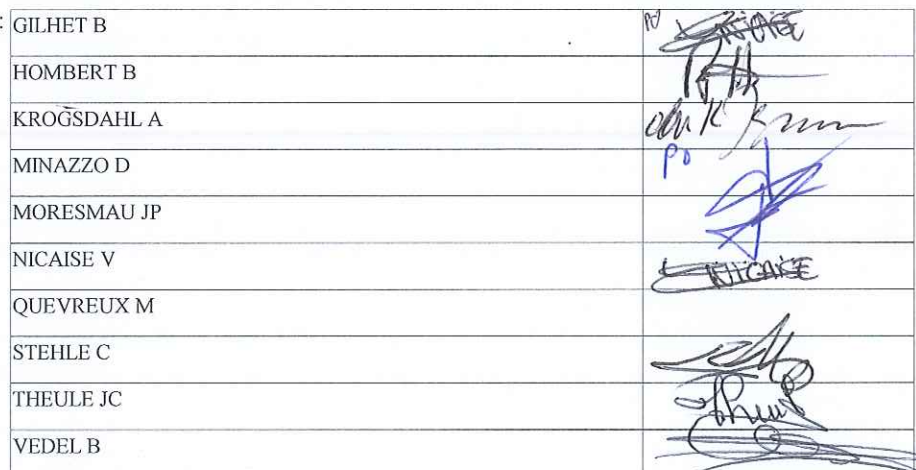 : GILHET B PO NICAISE
HOMBERT B
KROGSDAHL A
MINAZZO D PO
MORESMAU JP
NICAISE V NICAISE
QUEVREUX M
STEHLE C
THEULE JC
VEDEL B